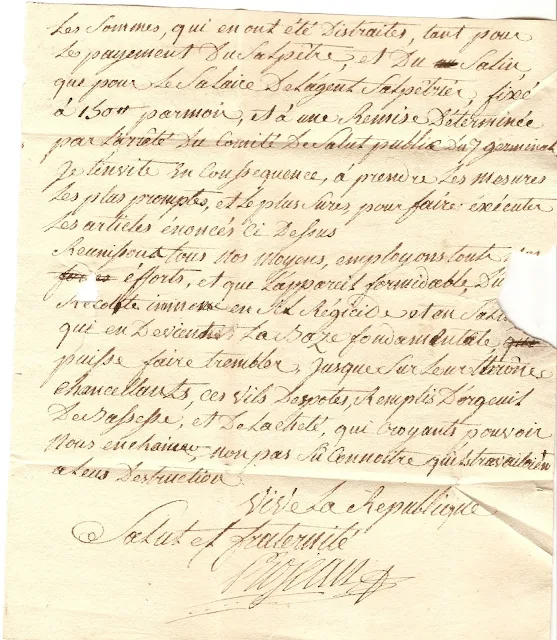 Les Sommes, qui en ont été Distraites, tant pour
Le payement Du Salpêtre, et Du Salin,
que pour Le Salaire De L'agent Salpêtrier, fixé
à 150tt par mois, et à une Remise Déterminée
par L'arrêté Du Comité De Salut public Du 7 germinal
Je t'invite En Consequence, à prendre Les Mesures
Les plus promptes, et Les plus Sures, pour faire exécuter
Les articles énoncés Ci Dessus
Reunissons tous Nos Moyens, employons tout
efforts, et que L'appareil formidable, Du
Récolte immense en Sel Régicide et en Sal
qui en Deviendra La Baze fondamentale
puisse faire trembler, Jusque Sur Leur thrône
chancellants, ces Vils Despotes, Remplis D'orgeuil
De Bassesse, et De Lacheté, qui Croyants pouvoir
Nous enchainer, non pas Sû Connoitre qu'ils travailloien
a Leurs Destruction
Vive La Republique
Salut et fraternité